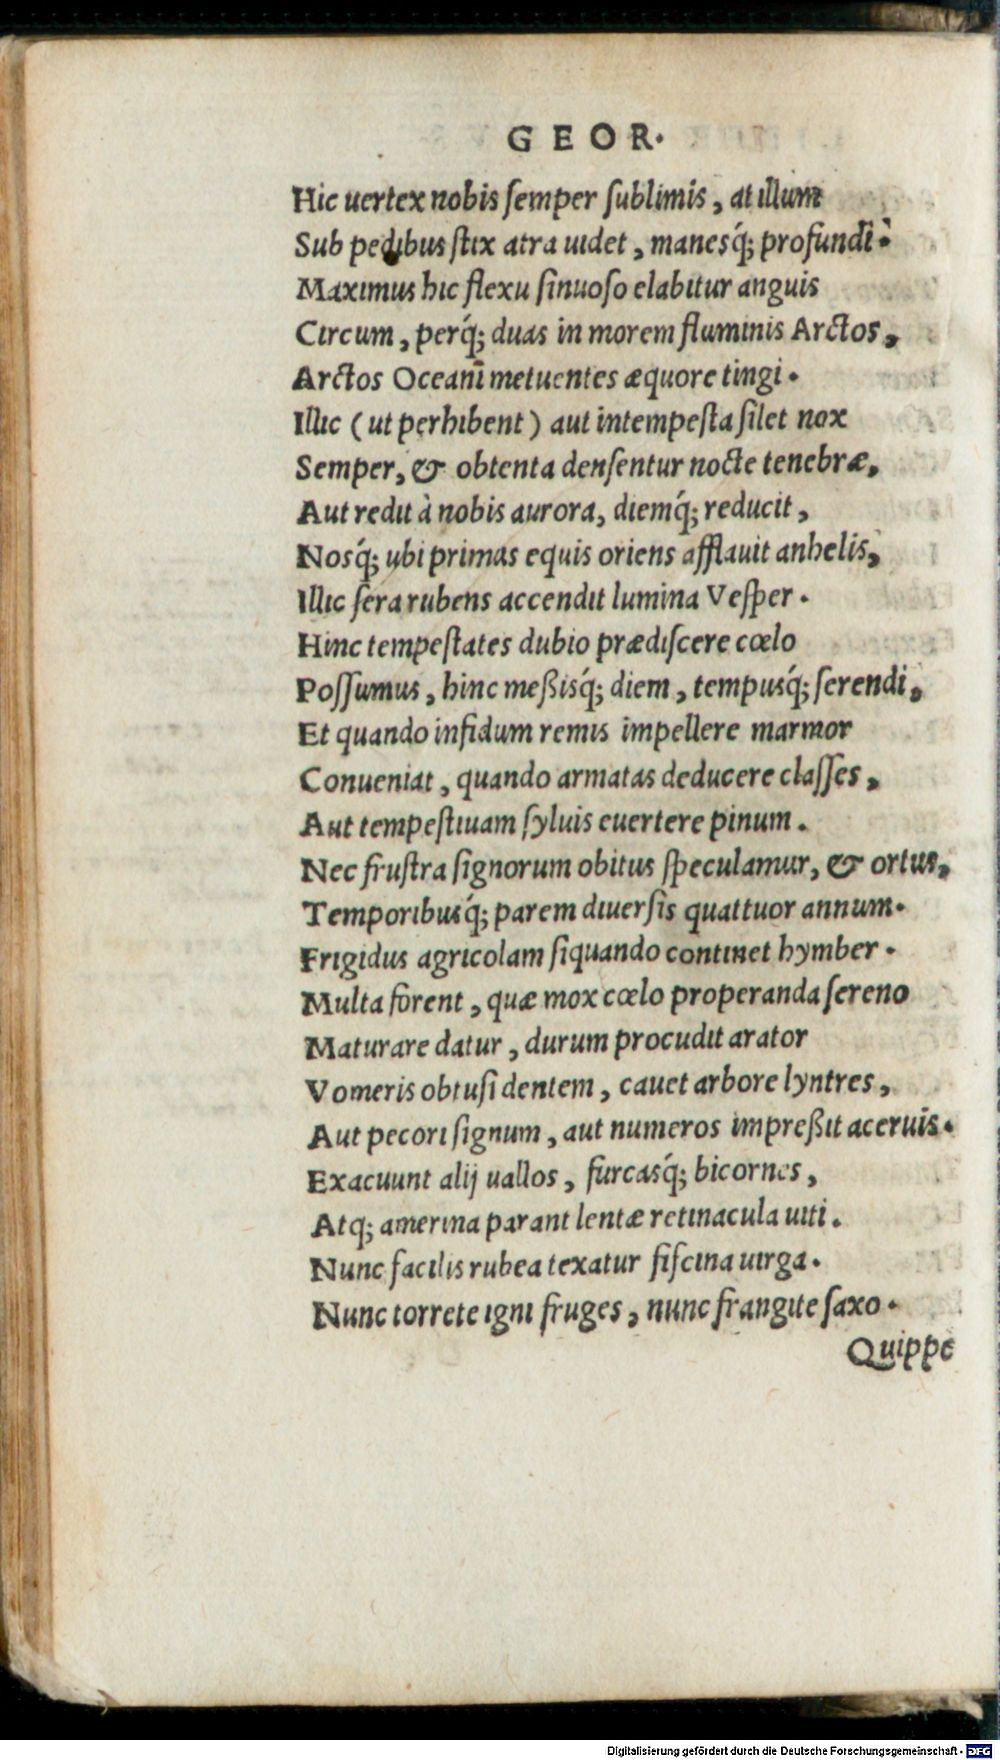 GEOR.
Hic uertex nobis semper sublimis, at illum
Sub pedibus stix atra uidet, manesq́; profundi.
Maximus hic flexu sinuoso elabitur anguis
Circum, perq́; duas in morem fluminis Arctos,
Arctos Oceani metuentes æquore tingi.
Illic (ut perhibent) aut intempesta silet nox
Semper, & obtenta densentur nocte tenebræ,
Aut redit à nobis aurora, diemq́; reducit,
Nosq́; ubi primas equis oriens afflauit anhelis,
Illic sera rubens accendit lumina Vesper.
Hinc tempestates dubio prædiscere cœlo
Possumus, hinc meßisq́; diem, tempusq́; serendi,
Et quando infidum remis impellere marmor
Conueniat, quando armatas deducere classes,
Aut tempestiuam syluis euertere pinum.
Nec frustra signorum obitus speculamur, & ortus,
Temporibusq́; parem diuersis quattuor annum.
Frigidus agricolam siquando continet hymber.
Multa forent, quæ mox cœlo properanda sereno
Maturare datur, durum procudit arator
Vomeris obtusi dentem, cauet arbore lyntres,
Aut pecori signum, aut numeros impreßit aceruis.
Exacuunt alij uallos, furcasq́; bicornes,
Atq; amerina parant lentæ retinacula uiti.
Nunc facilis rubea texatur fiscina uirga.
Nunc torrete igni fruges, nunc frangite saxo.
Quippe
Digitalisierung gefördert durch die Deutsche Forschungsgemeinschaft - DFG